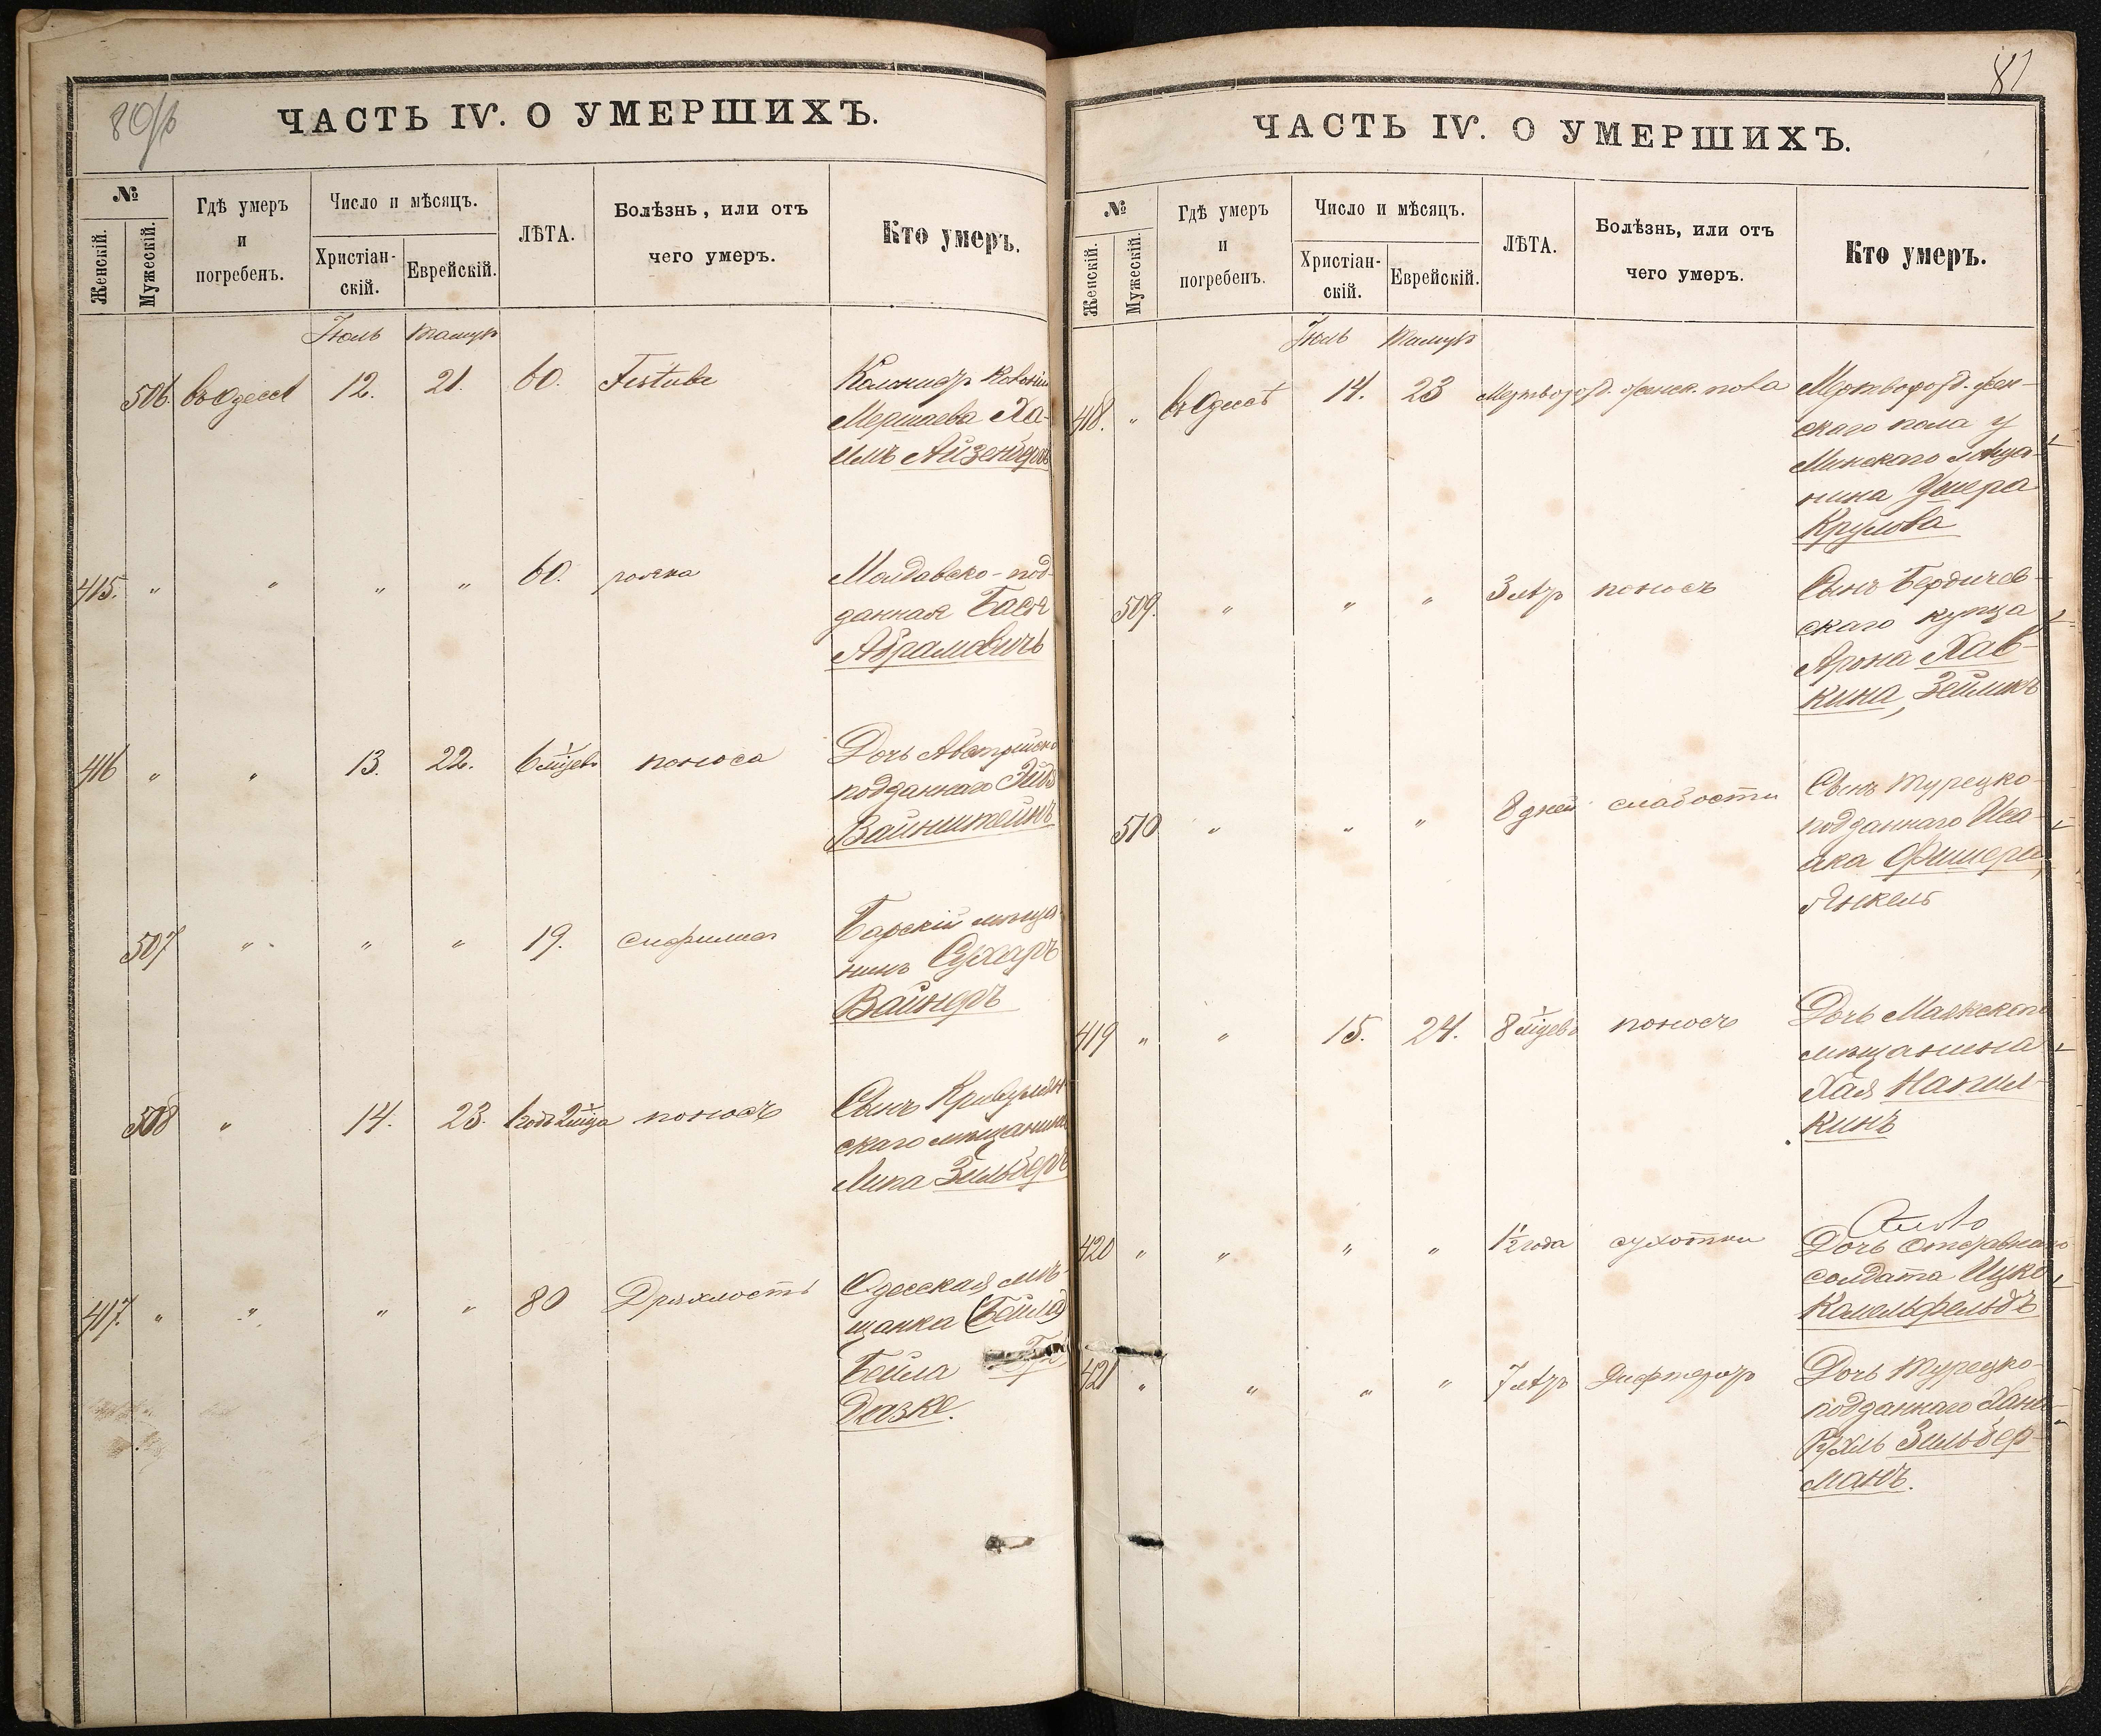 80/б
ЧАСТЬ IV. О УМЕРШИХЪ.
№
Женскій.
Мужескій.
Гдѣ умеръ
и
погребенъ.
Число и мѣсяцъ.
Христіан-
скій.
Еврейскій.
ЛѢТА.
Болѣзнь, или отъ
чего умеръ.
Кто умеръ.
Іюль Тамузъ
506. въ Одессѣ 12. 21. 60. Колонистъ
Ха-
имъ Айзенбергъ
415. " " " " 60. рожка Молдавско-под-
данная Бася
Абрамовичъ
416 " " 13. 22. 6 мѣсцевъ поноса Дочь Австрійско
подданнаго
Вайнштейнъ
507 " " " 19. сифилиса Барскій мѣща-
нинъ Сухаръ
Вайнеръ
508 " 14. 23. 1 годъ 2 мѣсца поносъ Сынъ
скаго мѣщанина
Липа Зильберъ
417. " " " " 80 Дряхлость Одесская мѣ-
щанка (Бейла)
Бейла
81
ЧАСТЬ IV. О УМЕРШИХЪ.
№
Женскій.
Мужескій.
Гдѣ умеръ
и
погребенъ.
Число и мѣсяцъ.
Христіан-
скій.
Еврейскій.
ЛѢТА.
Болѣзнь, или отъ
чего умеръ.
Кто умеръ.
Іюль Тамузъ
418. " въ Одессѣ 14. 23 Мертворожд. женск. пола Мертворожд. жен-
скаго пола у
Минскаго мѣща-
нина Умера
Крулова
509. " " " 3 лѣтъ поносъ Сынъ Бердичев-
скаго купца
Арона Хав-
кина, Зейликъ
510 " " " 8 дней слабости Сынъ Турецко-
подданнаго Иса-
ака Фишера,
Янкель
419 " " 15. 24. 8 мѣсцевъ поносъ Дочь Маякскаго
мѣщанина
Хая Напил-
кинъ
420 " " " " 1½ года сухотки Дочь отставнаго
солдата Ицко
Камельфельдъ
421 " " " " 7 лѣтъ дифтеритъ Дочь Турецко-
подданнаго Хана
Рухль Зильбер-
манъ.